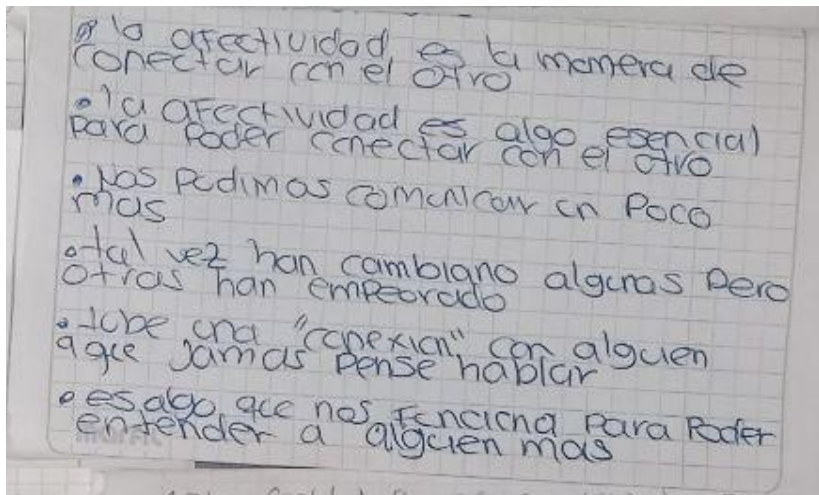 • la afectividad es la manera de
conectar con el otro
• la afectividad es algo esencial
para poder conectar con el otro
• Nos pudimos comunicar un poco
mas
• tal vez han cambiano algunas pero
otras han empeorado
• tube una "conexion" con alguen
aque jamas pense hablar
• es algo que nos funciona para poder
entender a alguen mas